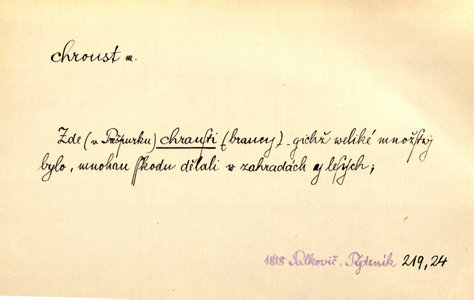 chroust m.
Zde (v Prešpurku) chrausti (braucy) gichž weliké množstwj
bylo, mnohau škodu dělali w zahradách y lesých;
1818 Palkovič. Týdeník 219,24